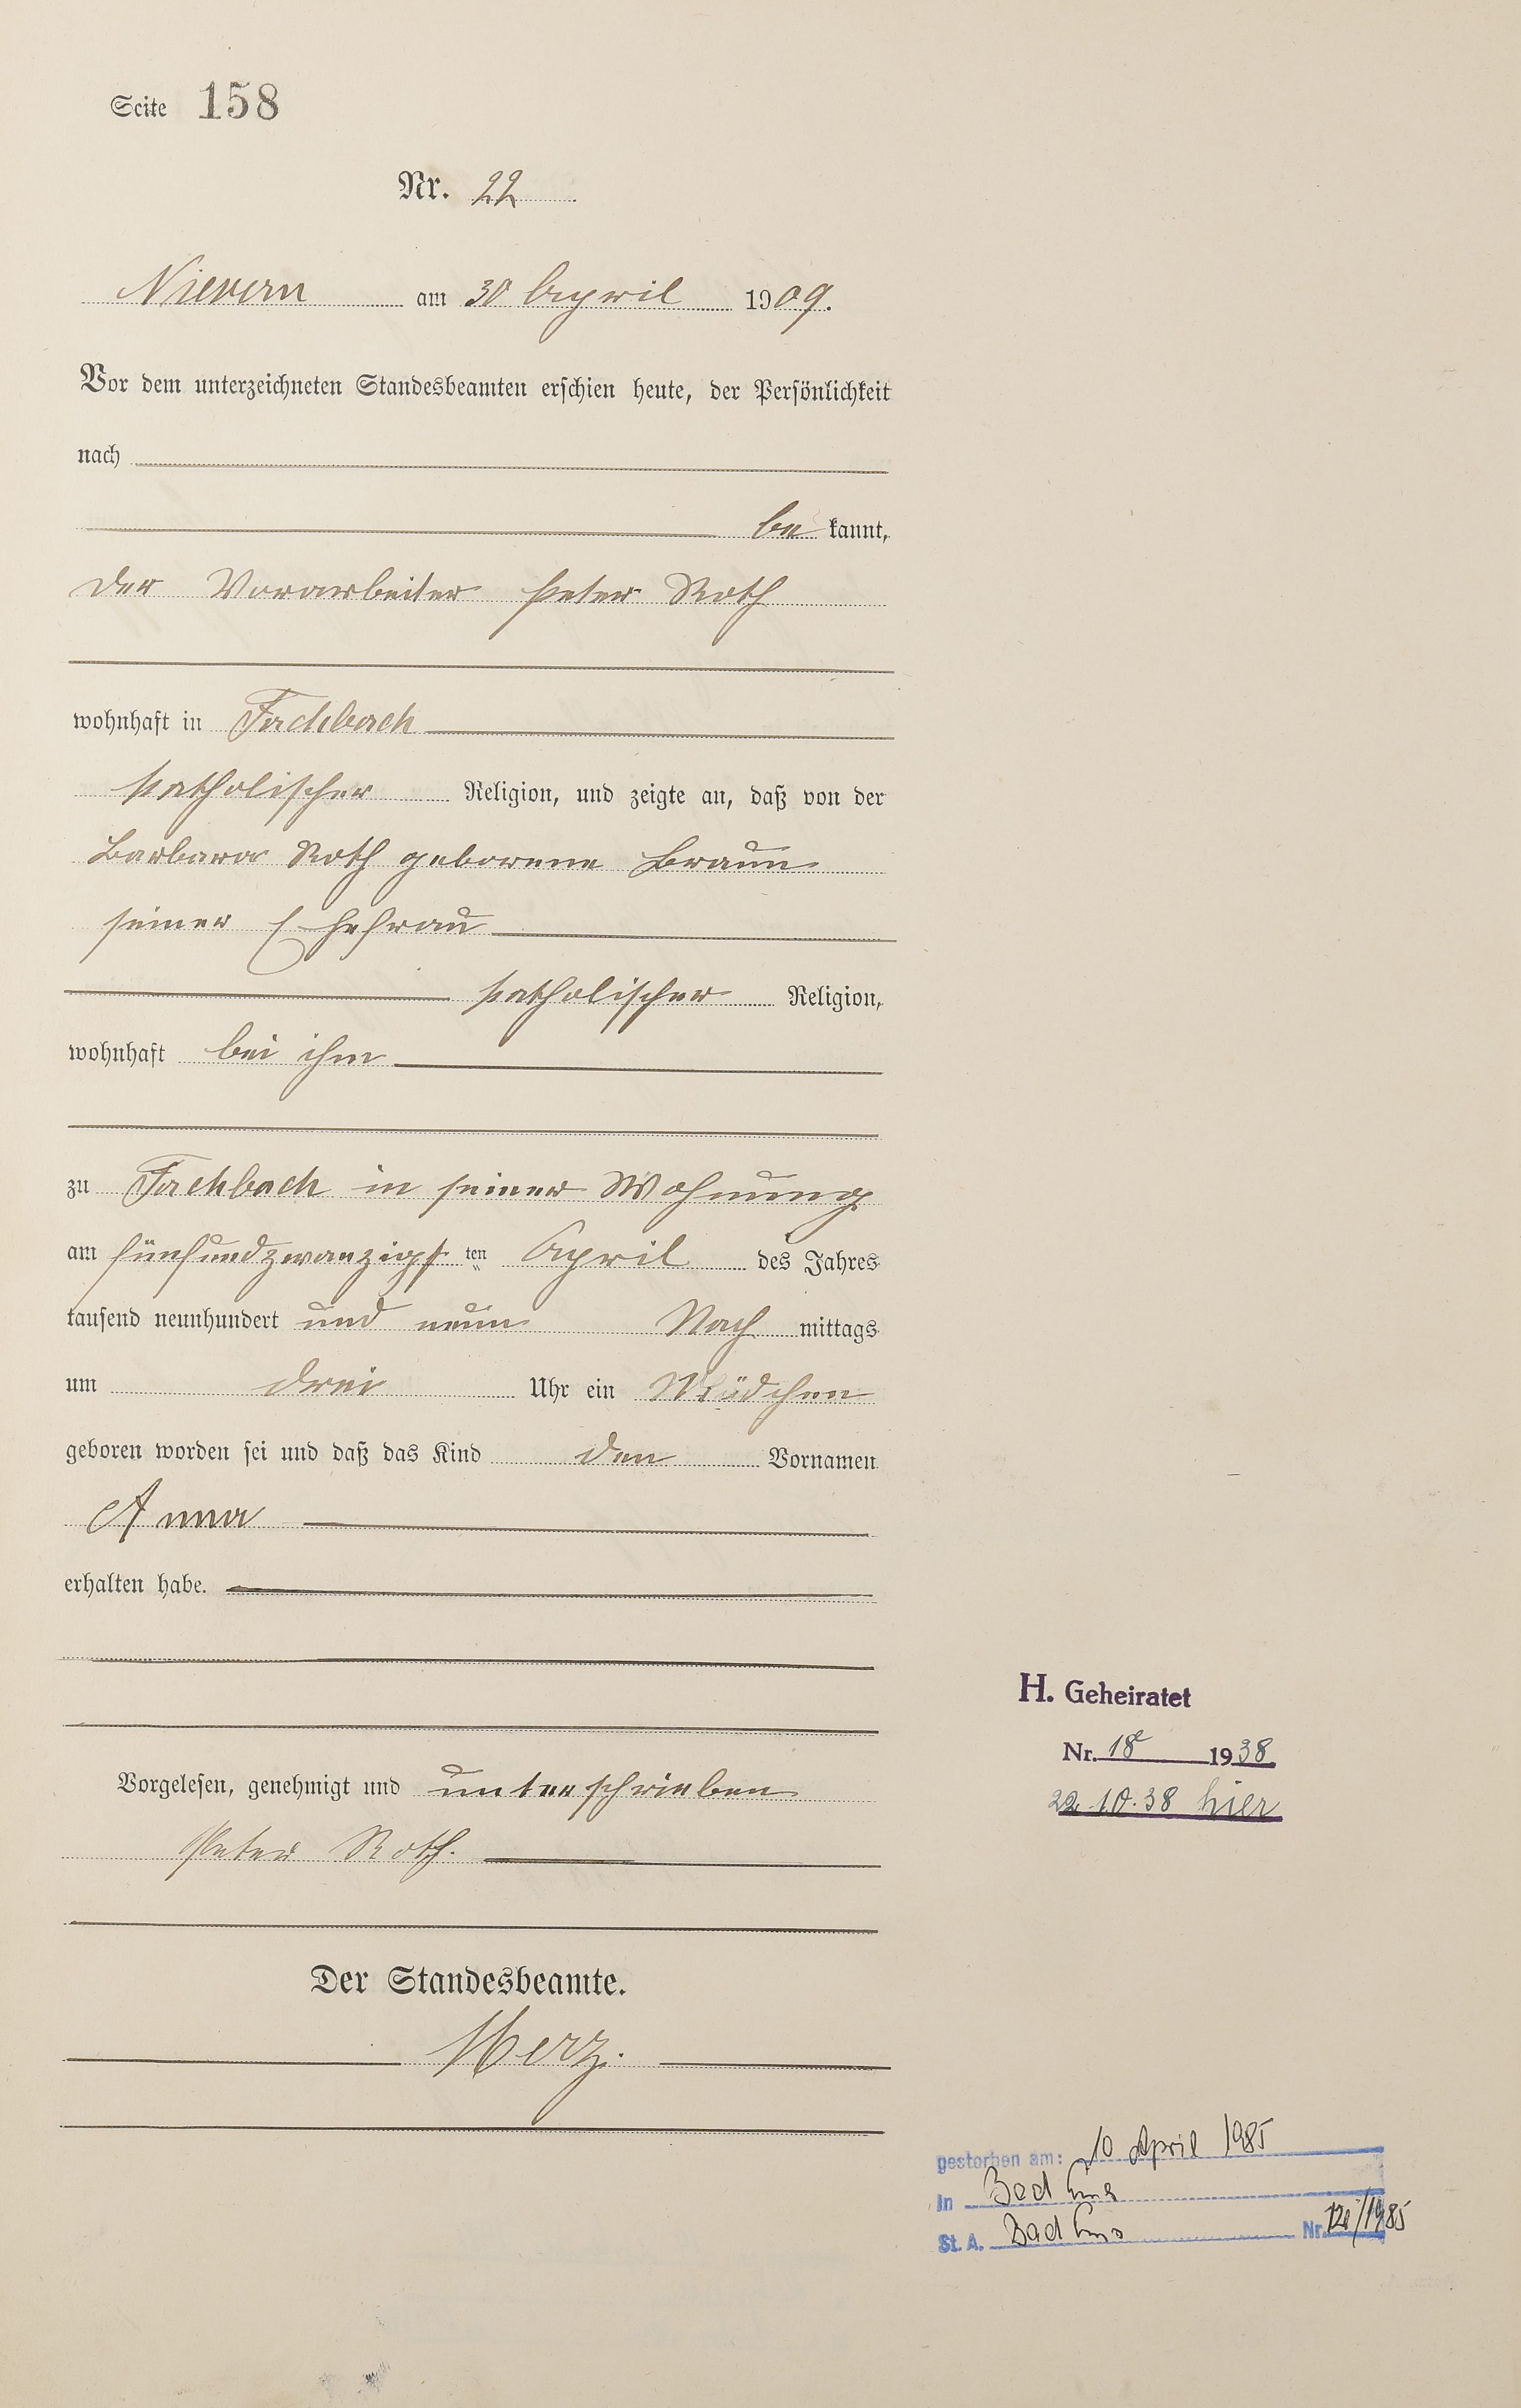 Seite 158
Nr. 22
Nievern am 30 April 1909.
Vor dem unterzeichneten Standesbeamten erschien heute, der Persönlichkeit
nach
be kannt,
der Vorarbeiter Peter Roth
wohnhaft in Fachbach
katholischer Religion, und zeigte an, daß von der
Barbara Roth geborene Braun
seiner Ehefrau
katholischer Religion,
wohnhaft bei ihm
zu Fachbach in seiner Wohnung
am fünfundzwanzigsten April des Jahres
tausend neunhundert und neun Nach mittags
um drei Uhr ein Mädchen
geboren worden sei und daß das Kind den Vornamen
Anna
erhalten habe.
Vorgelesen, genehmigt und unterschrieben
Peter Roth.
Der Standesbeamte.
Merz.
H. Geheiratet
Nr. 18 1938
22.10.38 hier
gestorben am: 10 April 1985
In Bad Ems
St. A. Bad Ems Nr.